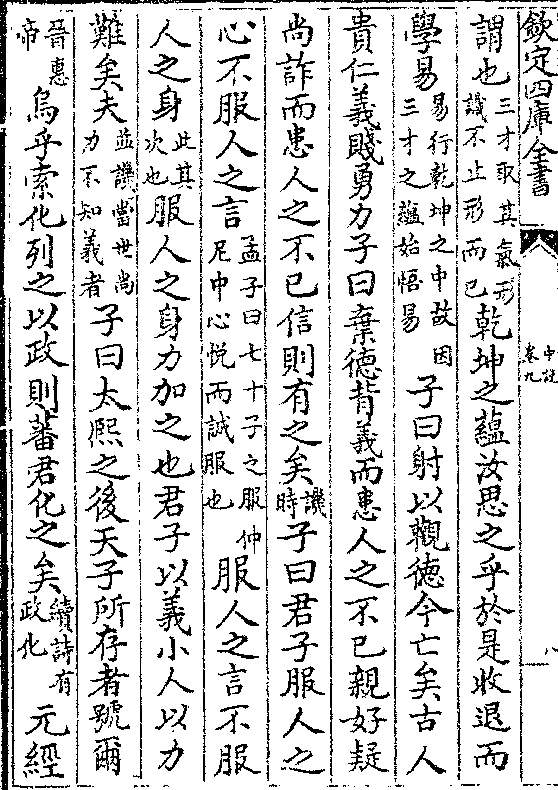 欽定四庫全書 中說 卷九 八
謂也三才取其氣形識不止形而已乾坤之蘊汝思之乎於是收退而
學易易行乾坤之中故因三才之蘊始悟易子曰射以觀德今亡矣古人
貴仁義賤勇力子曰棄德背義而患人之不已親好疑
尚詐而患人之不已信則有之矣譏時子曰君子服人之
心不服人之言孟子曰七十子之服仲尼中心悅而誠服也服人之言不服
人之身此其次也服人之身力加之也君子以義小人以力
難矣夫並譏當世尚力不知義者子曰太熙之後天子所存者號爾
晉惠帝烏乎索化列之以政則蕃君化之矣續詩有政化元經